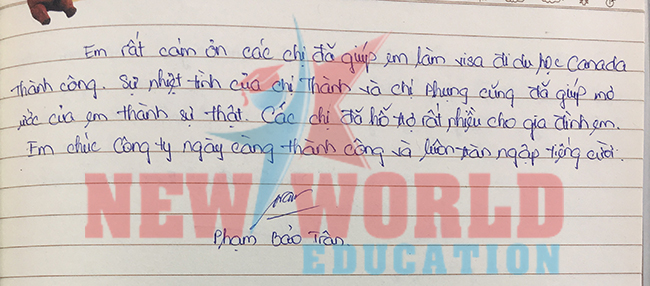 Em rất cảm ơn các chị đã giúp em làm visa đi du học Canada
thành công. Sự nhiệt tình của chị Thành và chị Phụng cũng đã giúp mơ
ước của em thành sự thật. Các chị đã hỗ trợ rất nhiều cho gia đình em.
Em chúc Công ty ngày càng thành công và luôn tràn ngập tiếng cười.
NEW WORLD
EDUCATION
Phạm Bảo Trân